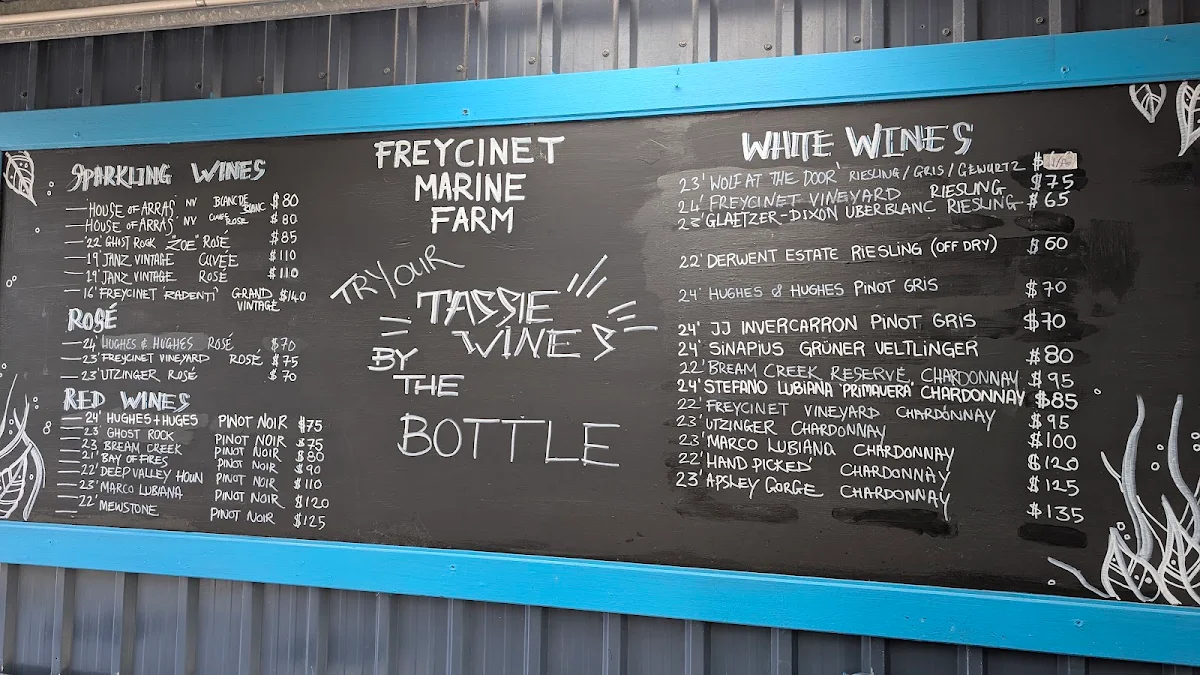 SPARKLING WINES
— 'HOUSE OF ARRAS' NV BLANC DE BLANC $80
— HOUSE OF ARRAS' NV CUVEE ROSE $80
— '22' GHOST ROCK "ZOE" ROSÉ $85
— 19' JANZ VINTAGE CUVÉE $110
— 19' JANZ VINTAGE ROSÉ $110
— 16' FREYCINET RADENTI' GRAND VINTAGE $140
ROSÉ
— 24' HUGHES & HUGHES ROSÉ $70
— 23' FREYCINET VINEYARD ROSÉ $75
— 23' UTZINGER ROSÉ $70
RED WINES
— 24' HUGHES + HUGES PINOT NOIR $75
— 23' GHOST ROCK PINOT NOIR $75
— 23 BREAM CREEK PINOT NOIR $80
— 21' BAY OF FIRES PINOT NOIR $90
— 22' DEEP VALLEY HOUN PINOT NOIR $110
— 23' MARCO LUBIANA PINOT NOIR $120
— 22' MEWSTONE PINOT NOIR $125
FREYCINET
MARINE
FARM
TRY OUR
TASSIE
WINES
BY
THE
BOTTLE
WHITE WINES
23' 'WOLF AT THE DOOR' RIESLING / GRIS / GEWURTZ $
24' FREYCINET VINEYARD RIESLING $75
23' GLAETZER-DIXON UBERBLANC RIESLING - $65
22' DERWENT ESTATE RIESLING (OFF DRY) $60
24' HUGHES & HUGHES PINOT GRIS $70
24' JJ INVERCARRON PINOT GRIS $70
24' SINAPIUS GRÜNER VELTLINGER $80
22' BREAM CREEK RESERVE CHARDONNAY $95
24' STEFANO LUBIANA 'PRIMAVERA' CHARDONNAY $85
22' FREYCINET VINEYARD CHARDONNAY $95
23' UTZINGER CHARDONNAY $100
23' MARCO LUBIANA CHARDONNAY $120
22' HAND PICKED' CHARDONNAY $125
23' APSLEY GORGE CHARDONNAY $135